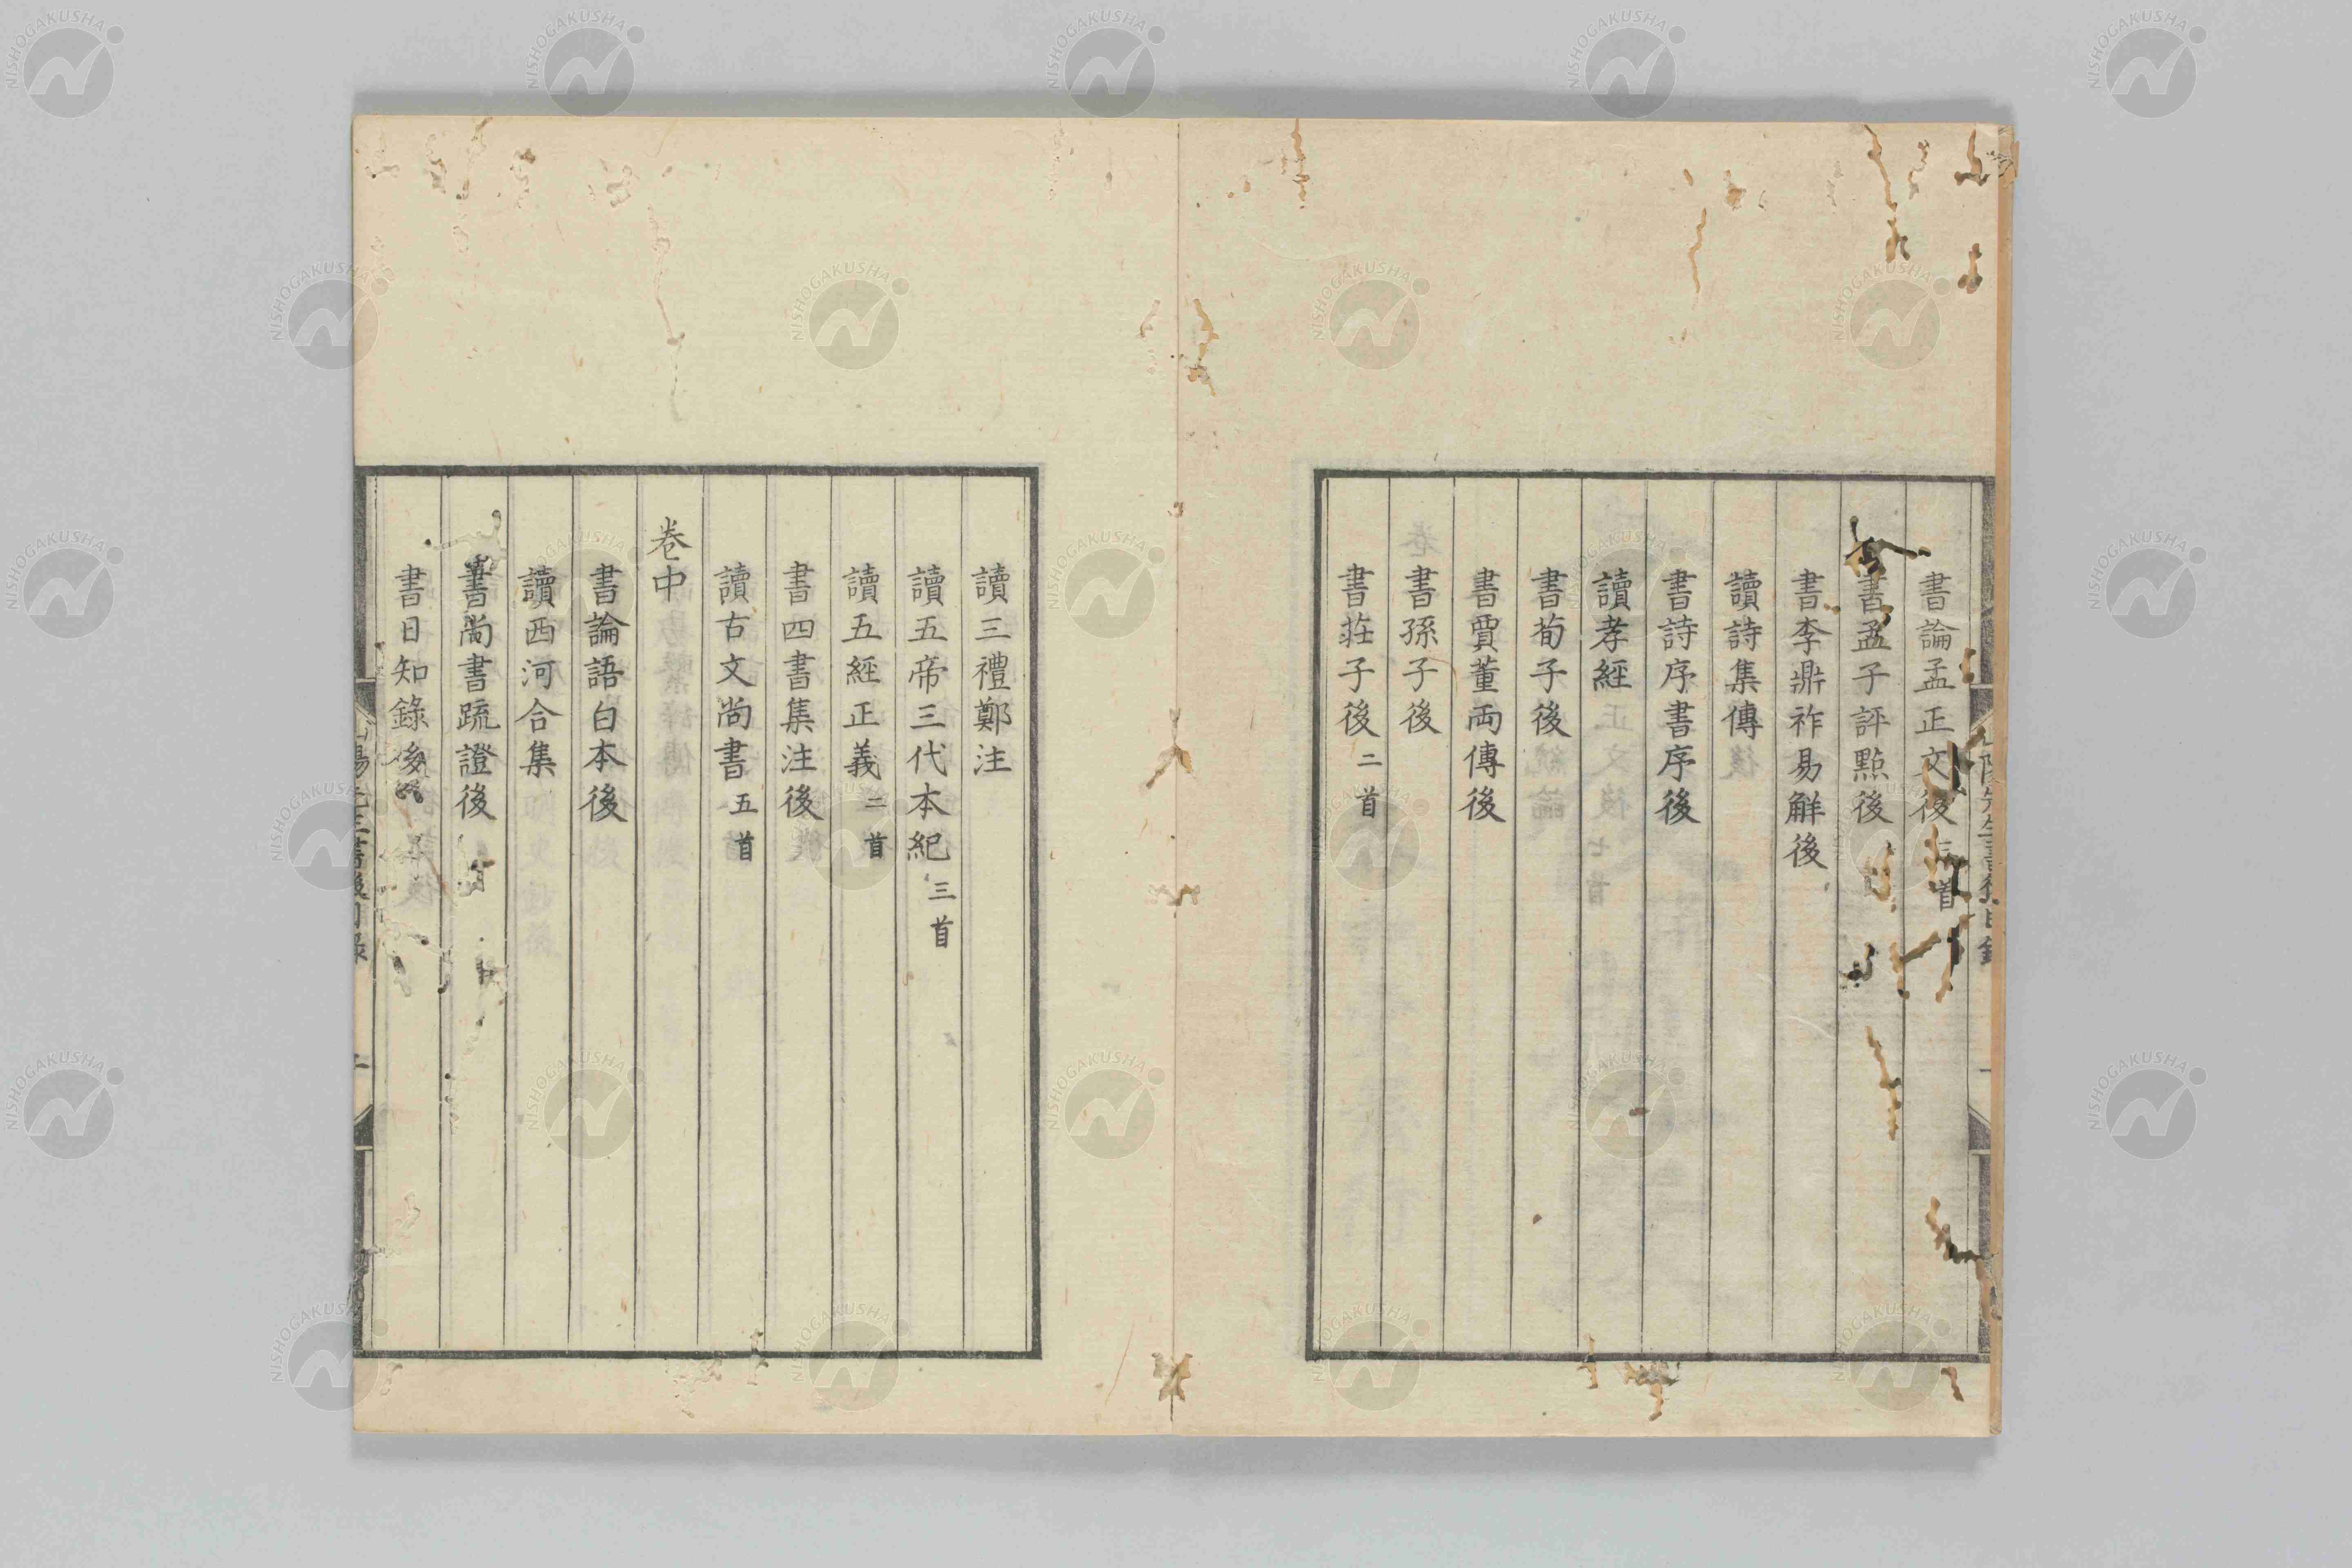 書論孟正文後 首
書孟子評點後
書李鼎祚易解後
讀詩集傳
書詩序書序後
讀孝經
書荀子後
書賈董両傳後
書孫子後
書莊子後 二首
讀三禮鄭注
讀五帝三代本紀 三首
讀五經正義 二首
書四書集注後
讀古文尚書 五首
卷中
書論語白本後
讀西河合集
書尚書疏證後
書日知錄後
NISHOGAKUSHA